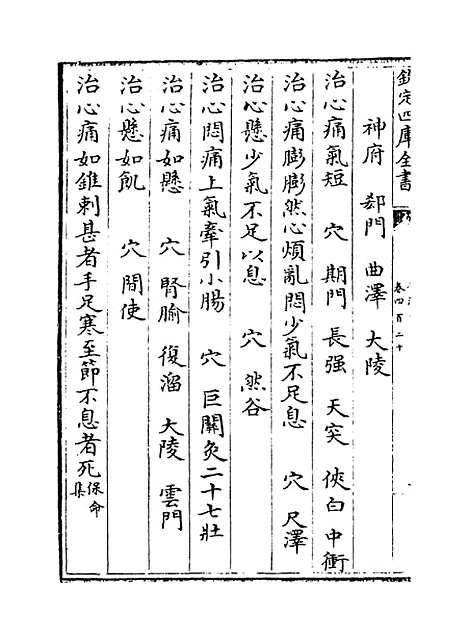 欽定四庫全書
卷四百二十
神府 郄門 曲澤 大陵
治心痛氣短 穴 期門 長强 天突 俠白 中衝
治心痛膨膨然心煩亂悶少氣不足息 穴 尺澤
治心懸少氣不足以息 穴 然谷
治心悶痛上氣牽引小腸 穴 巨關灸二十七壯
治心痛如懸 穴 腎腧 復溜 大陵 雲門
治心懸如飢 穴 間使
治心痛如錐刺甚者手足寒至節不息者死保命集